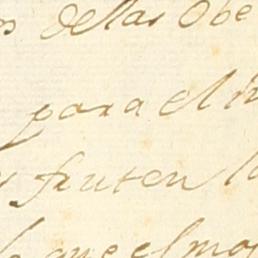 dellas Obe
para el
fruten
que el mo